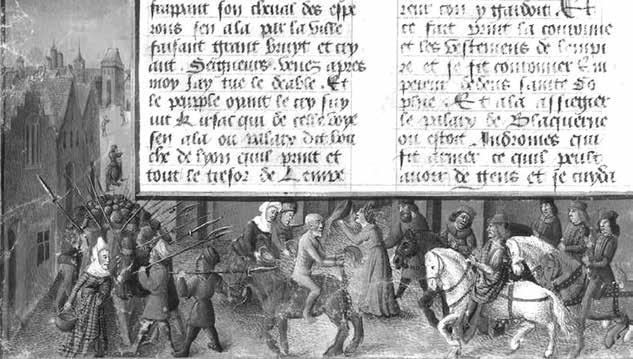 frapant son cheual des espe
rons sen ala par la ville
faisant grant bruyt et cry
ant. Seigneurs. venez apres
moy Jay tue le deable. Et
le peuple ouyt le cry suy
uit Kirsac qui de celle voye
sen ala ou palays dit bou
che de lyon quil print et
tout le tresor de Lempe
reur con y gardoit. Et
ce fait print la couronne
et les vestemens de lempi
re et se fit couronner Em
pereur dedens sainte So
phie. Et ala assegier
le palays de Blaquerne
ou estoit Andromes qui
fit armer ce quil peult
auoir de gens et se cuyda